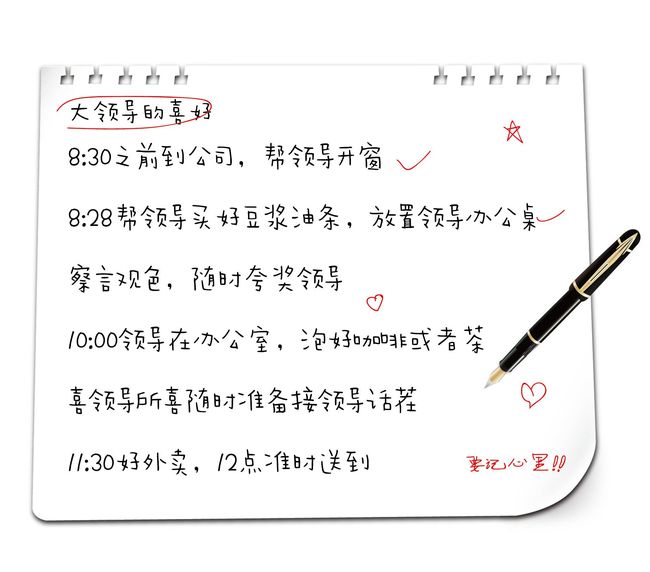 大领导的喜好
8:30之前到公司，帮领导开窗
8:28帮领导买好豆浆油条，放置领导办公桌
察言观色，随时夸奖领导
10:00领导在办公室，泡好咖啡或者茶
喜领导所喜随时准备接领导话茬
11:30好外卖，12点准时送到
要记心里!!